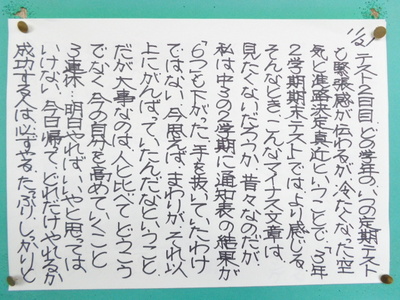 11/22
テスト2日目。どの学年の、いつの定期テスト
も緊張感が伝わるが、冷たくなった空
気と進路決定真近ということで、「3年
2学期期末テスト」ではより感じる。
そんなとき、こんなマイナス文章は、
見たくないだろうが、昔々なのだが、
私は中3の2学期に通知表の結果が
「6つ」も下がった。手を抜いていたわけ
ではない。今思えば、まわりが、それ以
上にがんばっていたんだなということ。
だが大事なのは、人と比べてどうこう
でなく、今の自分を高めていくこと
3連休…明日やればいいやと思っては
いけない。今日帰って、どれだけやれるか
成功する人は必ずやる。たっぷり、しっかりと